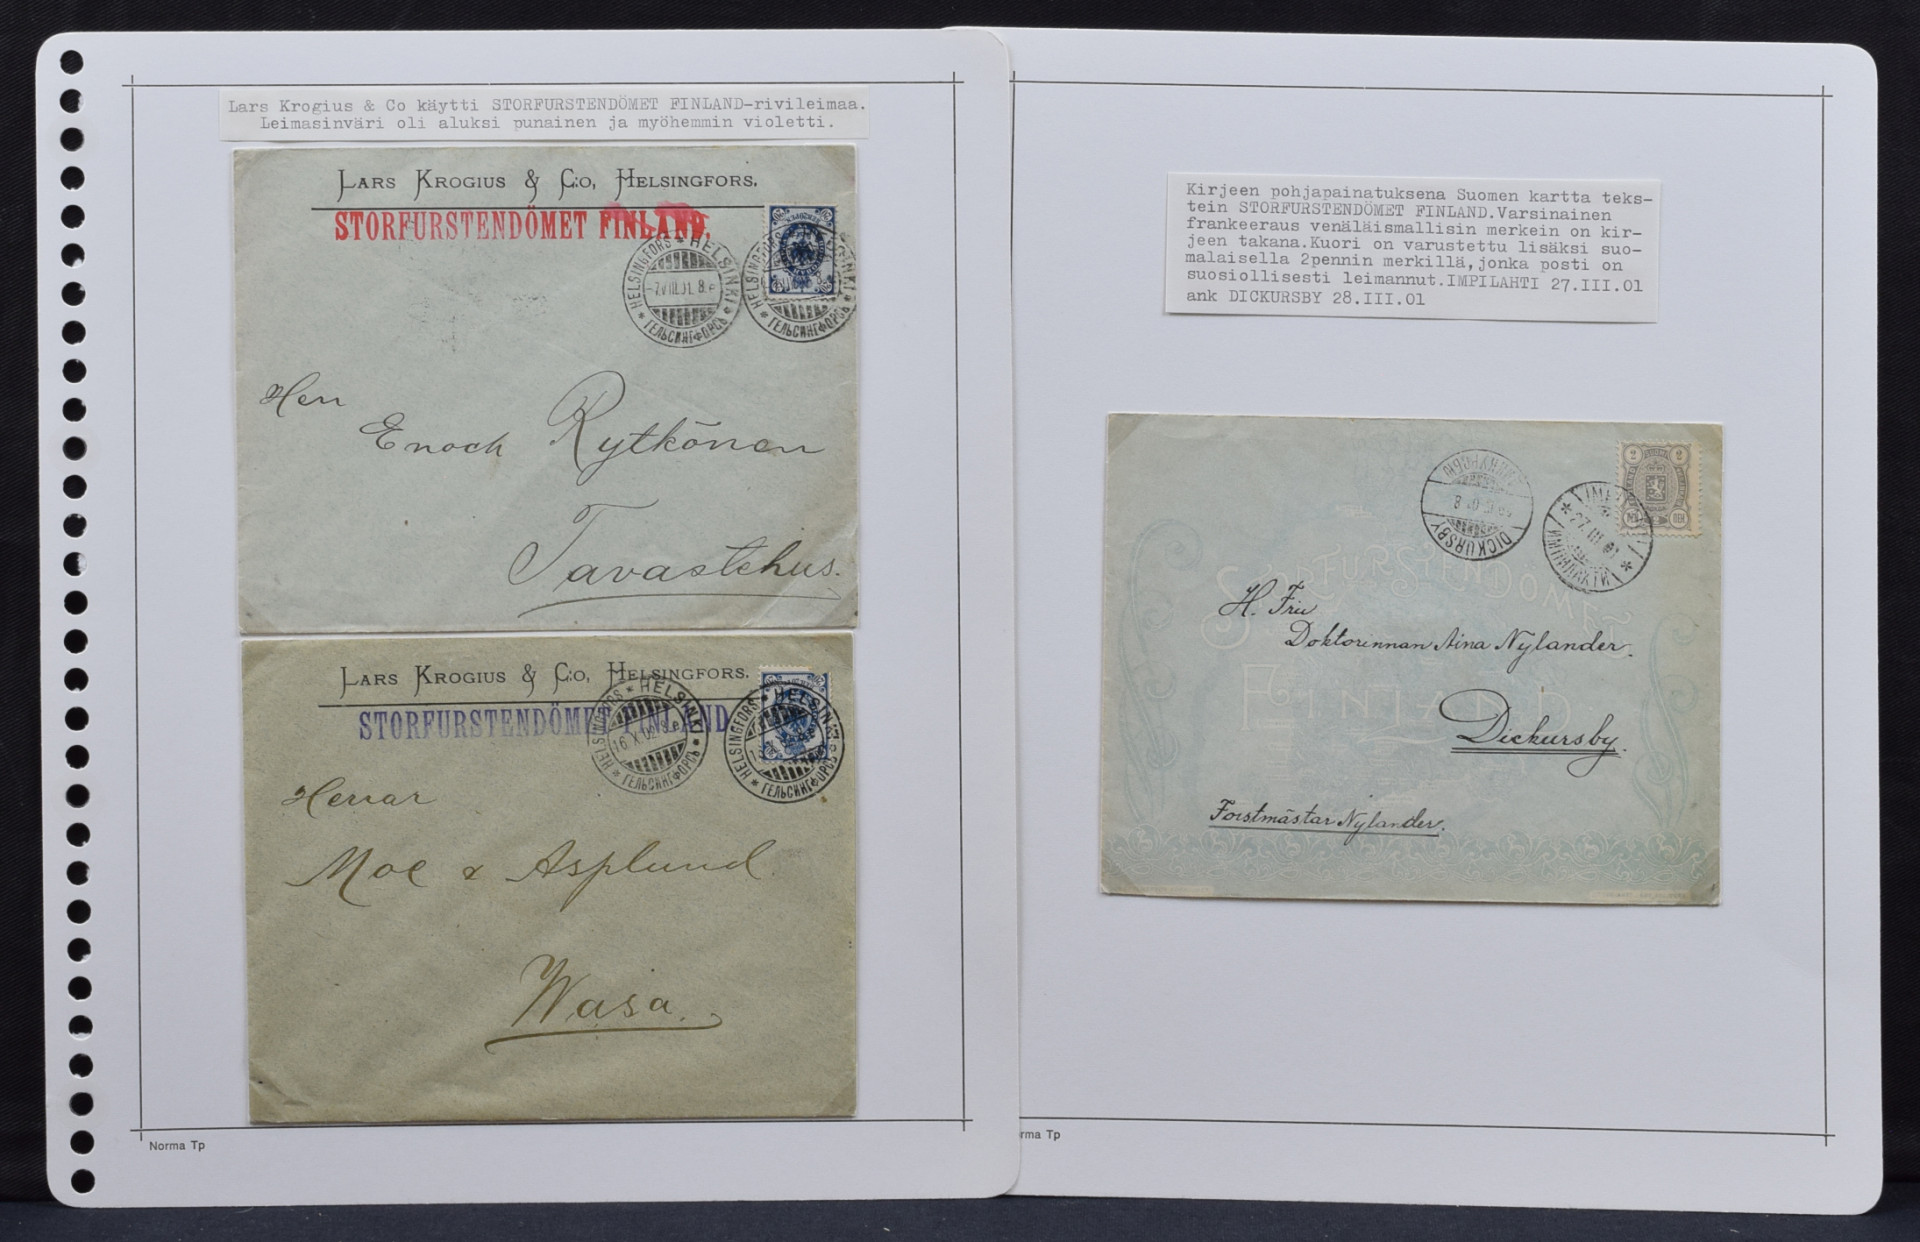 Lars Krogius & Co käytti STORFURSTENDÖMET FINLAND-rivileimaa.
Leimasinväri oli aluksi punainen ja myöhemmin violetti.
LARS KROGIUS & C:O, HELSINGFORS.
STORFURSTENDÖMET FINLAND.
HELSINGFORS * HELSINKI * ГЕЛЬСИНГФОРСЪ *
7.VIII.01. 8.e
HELSINGFORS * HELSINKI * ГЕЛЬСИНГФОРСЪ *
Herr
Enoch Rytkönen
Tavastehus.
LARS KROGIUS & C:O, HELSINGFORS.
STORFURSTENDÖMET FINLAND
HELSINGFORS * HELSINKI * ГЕЛЬСИНГФОРСЪ *
16.X.02. 8.e
HELSINGFORS * HELSINKI * ГЕЛЬСИНГФОРСЪ *
Herrar
Moe & Asplund
Wasa.
Norma Tp
Kirjeen pohjapainatuksena Suomen kartta teks-
tein STORFURSTENDÖMET FINLAND.Varsinainen
frankeeraus venäläismallisin merkein on kir-
jeen takana.Kuori on varustettu lisäksi suo-
malaisella 2pennin merkillä,jonka posti on
suosiollisesti leimannut.IMPILAHTI 27.III.01
ank DICKURSBY 28.III.01
2 SUOMI 2
PEN ПЕН
DICKURSBY
27.III.01
STORFURSTENDÖMET
FINLAND
H. Fru
Doktorinnan Aina Nylander.
Dickursby.
Forstmästar Nylander.
rma Tp